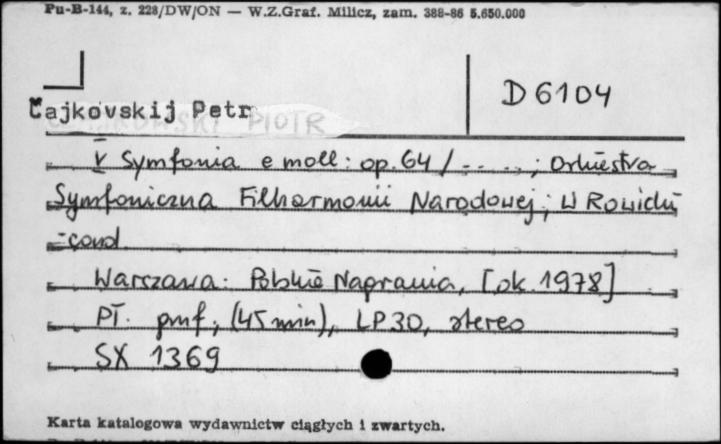 Pu-B-144, z. 228/DW/ON — W.Z.Graf. Milicz, zam. 388-86 5.650.000
D 6104
Čajkovskij Petr
PIOTR
V Symfonia e moll : op. 64 / - - . . . ; Orkiestra
Symfoniczna Filharmonii Narodowej ; W Rowicki
- cond
Warszawa : Polskie Nagrania, [ok. 1978]
Pł. gmf ; (45 min), LP 30, stereo
SX 1369
Karta katalogowa wydawnictw ciągłych i zwartych.